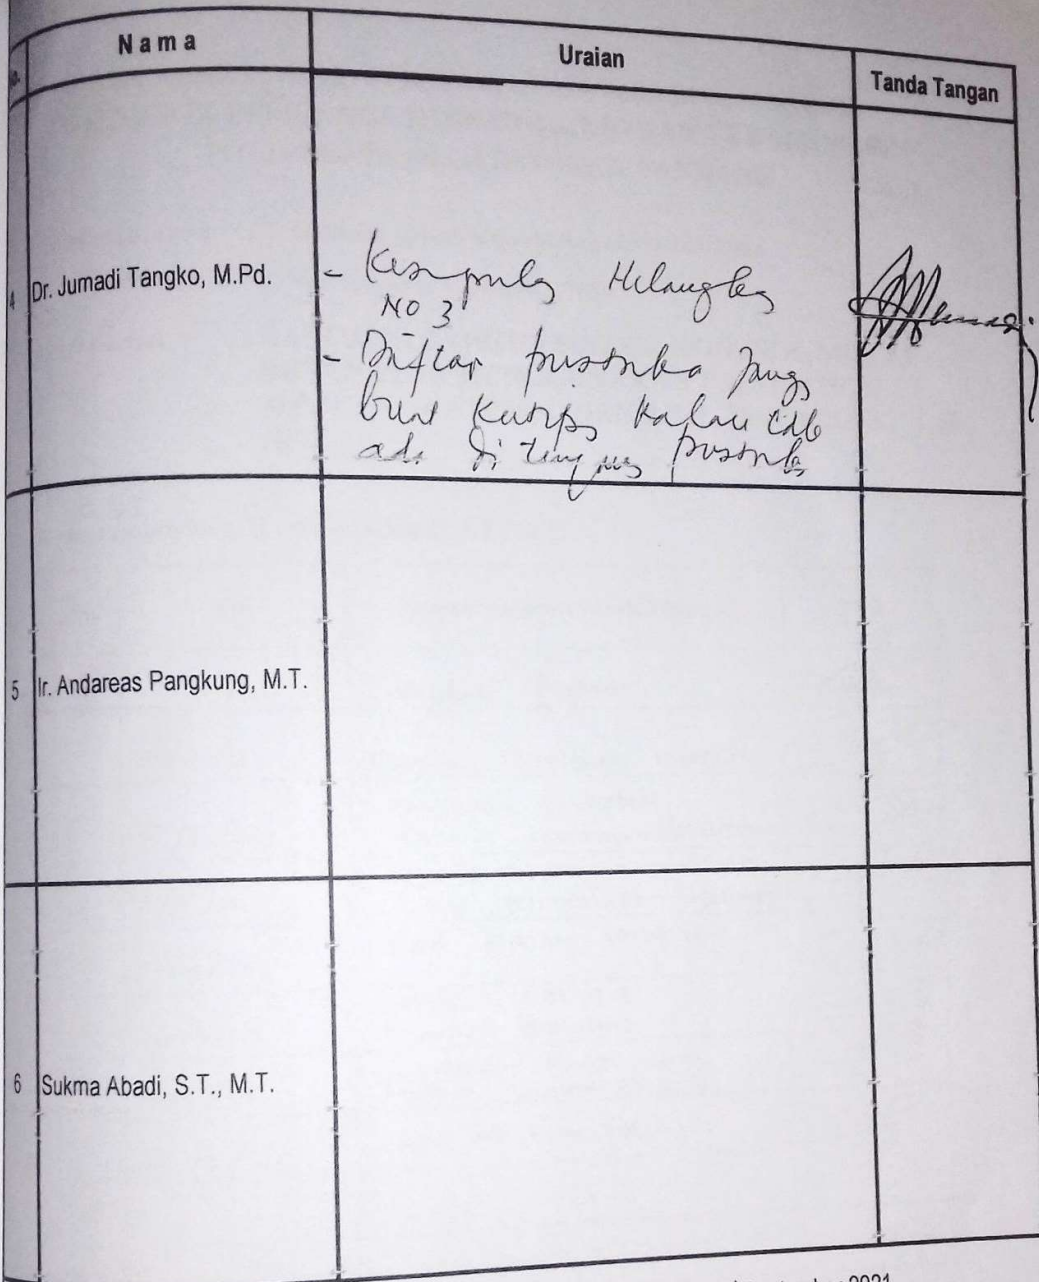 Nama Uraian Tanda Tangan
4 Dr. Jumadi Tangko, M.Pd.
- Kesimpulan Hilangkan
NO 3
- Daftar pustaka yang
kalau tdk
ada di
5 Ir. Andareas Pangkung, M.T.
6 Sukma Abadi, S.T., M.T.
2021